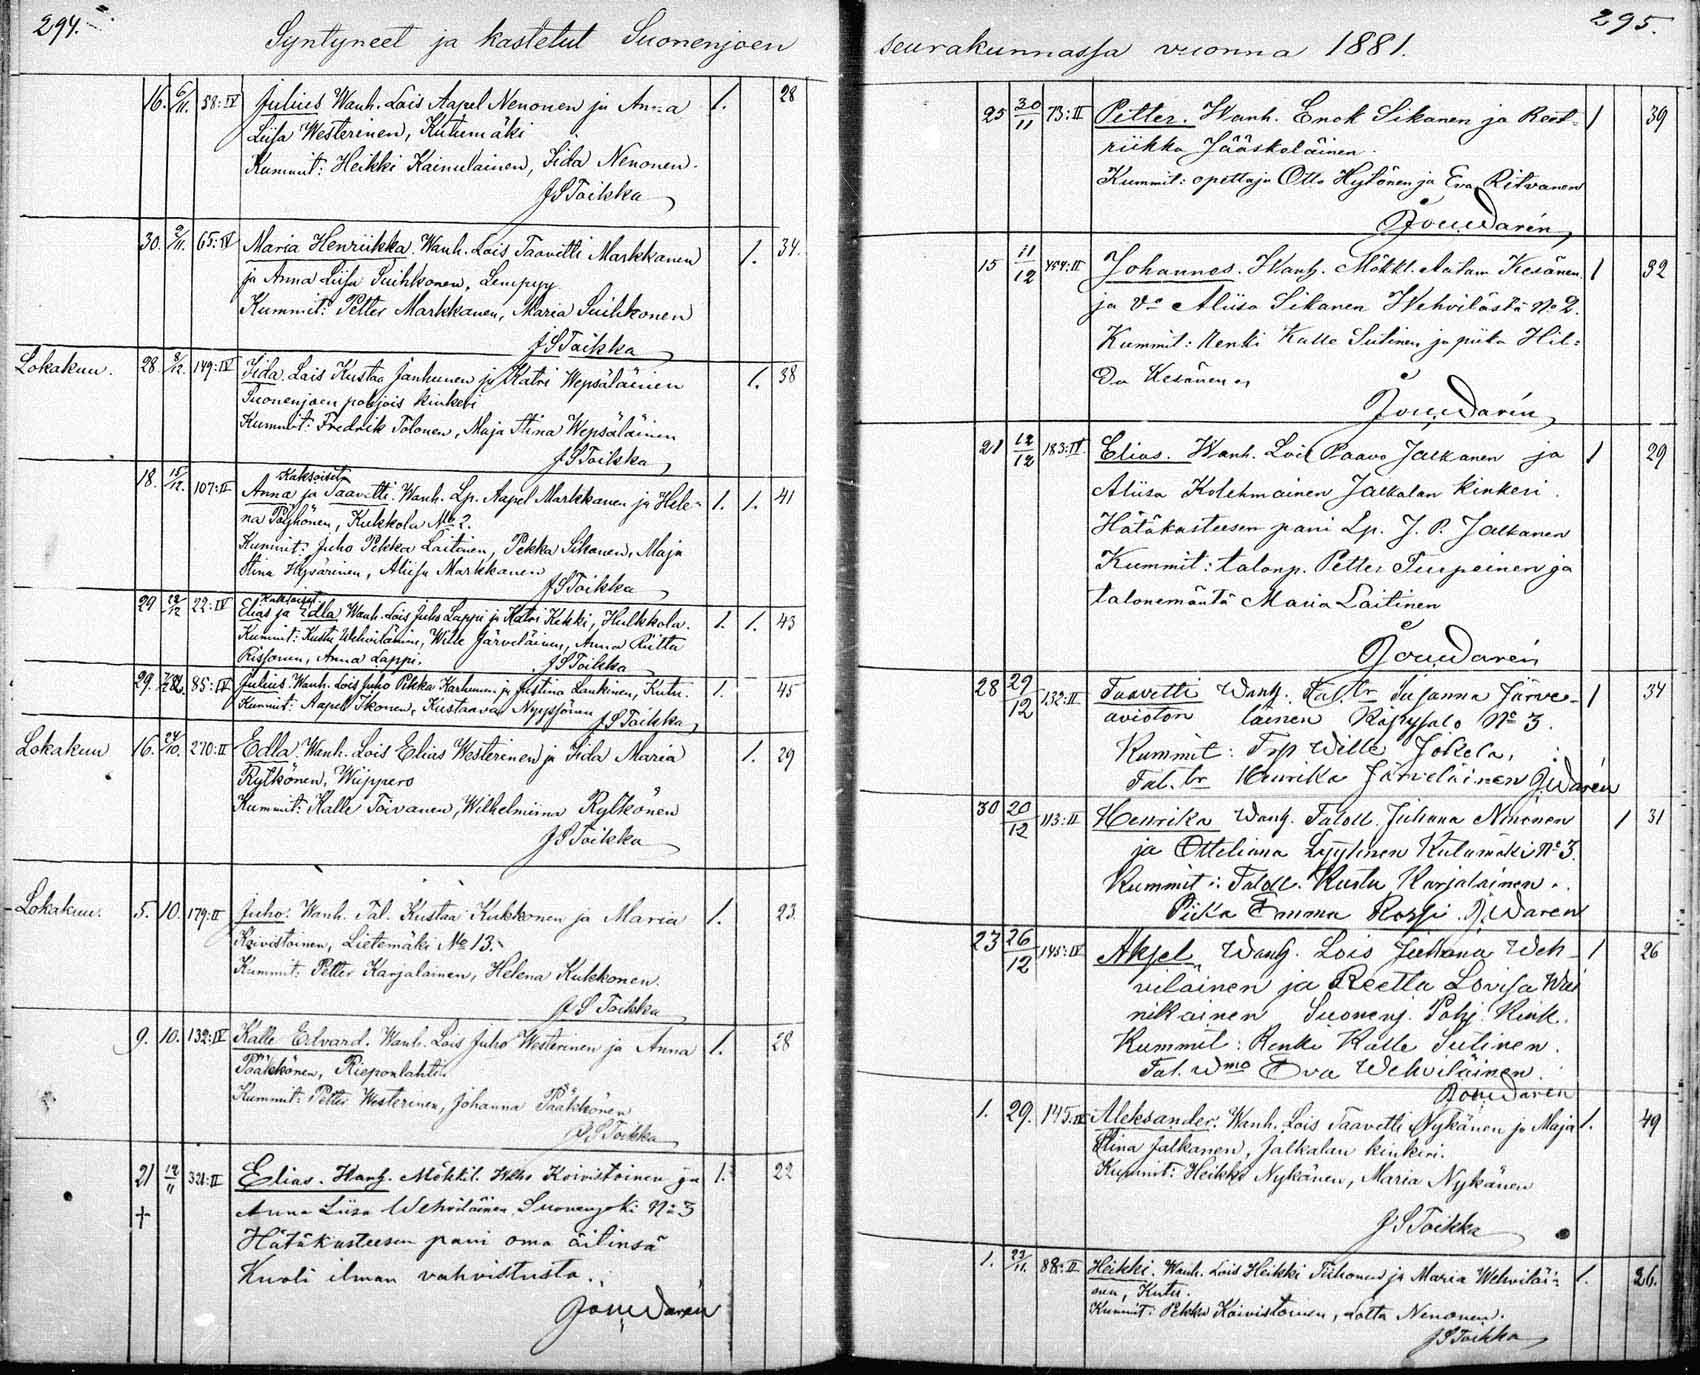 294.
Syntyneet ja kastetut Suonenjoen
16. 6/11. 58:IV Julius Wanh. Lois Aapel Nenonen ja Anna 1. 28
Liisa Westerinen, Kutumäki
Kummit: Heikki Kainulainen, Iida Nenonen.
J S Toikka
30. 9/11. 65:IV Maria Henriikka. Wanh. Lois Taavetti Markkanen 1. 34.
ja Anna Liisa Suihkonen, Lempyy
Kummit: Petter Markkanen, Maria Suihkonen
J S Toikka
Lokakuu. 28. 8/12. 149:IV Iida. Lois Kustaa Janhunen ja Katri Wepsäläinen 1. 38
Suonenjoen pohjois kinkeri
Kummit: Fredrik Tolonen, Maja Stina Wepsäläinen
J S Toikka
Kaksoiset
18. 15/12. 107:II Anna ja Taavetti. Wanh. Lp. Aapel Markkanen ja Hele- 1. 1. 41
na Pöyhönen, Kukkola No 2.
Kummit: Juho Pekka Laitinen, Pekka Sikanen, Maja
Stina Hyvärinen, Aliisa Markkanen
J S Toikka
Kaksoiset.
29 22/12 22:IV Elias ja Edla. Wanh. Lois Juho Lappi ja Katri Kekki, Hulkkola. 1. 1. 43
Kummit: Kusta Wehviläinen, Wille Järveläinen, Anna Riitta
Rissonen, Anna Lappi.
J S Toikka
29. 85:IV Julius. Wanh. Lois Juho Pekka Karhunen ja Justina Laukinen, Kutu. 1. 45
Kummit: Aapel Ikonen, Kustaava Nyyssönen
J S Toikka
Lokakuu 16. 24/10. 270:II Edla. Wanh. Lois Elias Westerinen ja Iida Maria 1. 29
Rytkönen, Wiippero
Kummit: Kalle Toivanen, Wilhelmiina Rytkönen
J S Toikka
Lokakuu. 5. 10. 179:II Juho. Wanh. Tal. Kustaa Kukkonen ja Maria 1. 23.
Koivistoinen, Lietemäki No 13.
Kummit: Petter Karjalainen, Helena Kukkonen.
J S Toikka
9. 10. 132:IV Kalle Edvard. Wanh. Lois Juho Westerinen ja Anna 1. 28
Pääkkönen, Rieponlahti.
Kummit: Petter Westerinen, Johanna Pääkkönen
J S Toikka
21 12/11 321:II Elias. Wanh. Mökkil. Koivistoinen ja 1. 22
† Anna Liisa Wehviläinen. Suonenjoki No 3
Hätäkasteesen pani oma äitinsä
Kuoli ilman vahvistusta.
Joh. Warén
295.
seurakunnassa vuonna 1881.
25 30/11 73:II Petter. Wanh. Enok Sikanen ja Reet- 1 39
riikka Jääskeläinen.
Kummit: opettaja Otto Hytönen ja Eva Ritvanen
Joh. Warén
15 11/12 454:II Johannes. Wanh. Mökkl. Aatam Kesänen 1 32
ja Vo Aliisa Sikanen Wehvilästä No 2.
Kummit: Renki Kalle Sutinen ja piika Hil-
da Kesänen
Joh. Warén
21 12/12 183:IV Elias. Wanh. Lois Paavo Jalkanen ja 1 29
Aliisa Kolehmainen Jalkalan Kinkeri.
Hätäkasteesen pani Lp. J. P. Jalkanen
Kummit: talonp. Petter Turpeinen ja
talonemäntä Maria Laitinen
Joh. Warén
28 29/12 132:II Taavetti Wanh. Tal. tr Susanna Järve- 1 34
avioton läinen Käpysalo No 3.
Kummit: Wille Jokela,
Tal. tr Henrika Järveläinen J. Warén
30 20/12 113:II Henrika Wanh. Taloll. Juhana Ninonen 1 31
ja Otteliana Lyytinen Kutumäki No 3.
Kummit: Taloll. Kusta Karjalainen.
Piika Emma Rossi. J. Warén
23 26/12 145:IV Aksel Wanh. Lois Juhana Weh- 1 26
viläinen ja Reetta Lovisa Wäi
nikainen Suonenj. Pohj. Kink.
Kummit: Renki Kalle Sutinen.
Tal. Wmo Eva Wehviläinen.
Joh. Warén
1. 29. 145.IV Aleksander. Wanh. Lois Taavetti Nykänen ja Maja 1. 49
Stina Jalkanen, Jalkalan kinkeri.
Kummit: Heikki Nykänen, Maria Nykänen
J S Toikka
1. 22/11. 88:II Heikki. Wanh. Lois Heikki Tiihonen ja Maria Wehviläi- 1. 26.
nen, Kutu.
Kummit: Pekka Koivistoinen, Lotta Nenonen.
J S Toikka